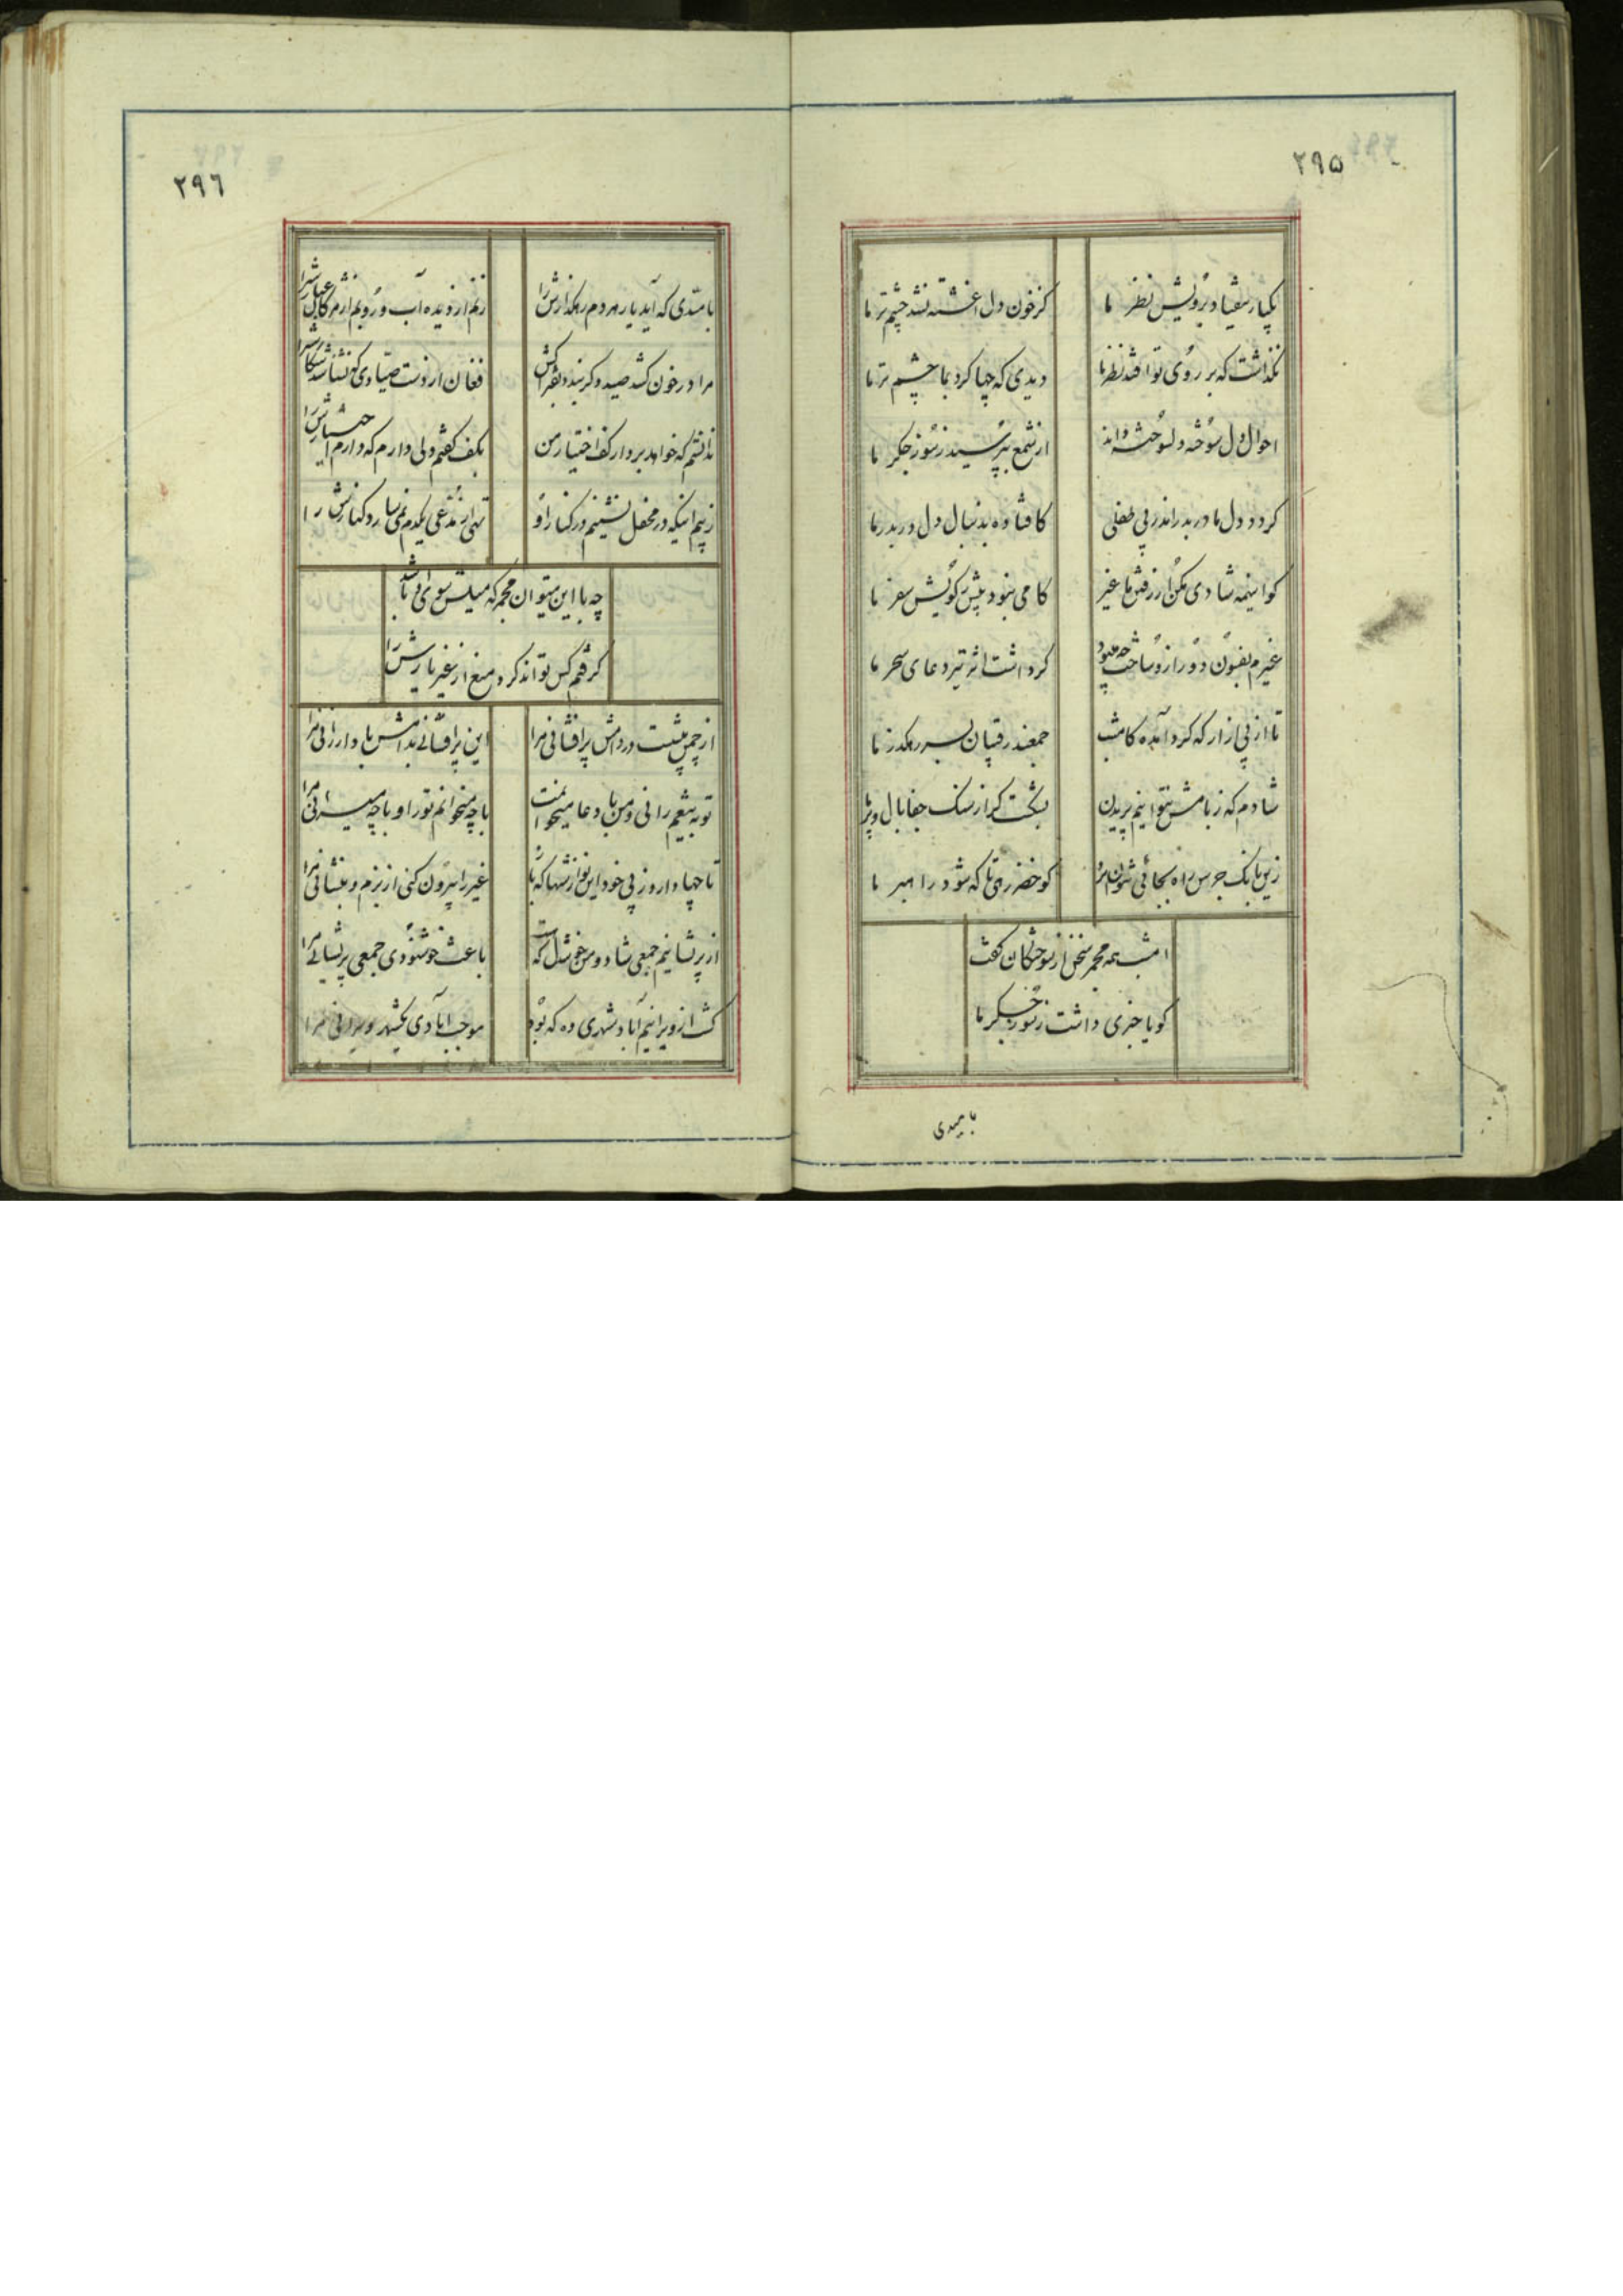 ۲۹۵
یکبار نیفتاد برویش نظر ما
کز خون دل اغشته نشد چشم تر ما
نگذاشت که بر روی تو افتد نظر ما
دیدی که چها کرد بما چشم تر ما
احوال دل سوخته دلسوخته داند
از شمع بپرسید ز سوز جگر ما
کرد دل ما دربدر اندر پی طفلی
کافتاده بدنبال دل دربدر ما
کو اینهمه شادی مکن از رفتن ما غیر
کامی نبود بیش ز کویش سفر ما
غیرم بفسون دور ازو ساخت چه میبود
کر داشت اثر تیر دعای سحر ما
تا از پی ازار که کرد آمده کامشب
جمعند رقیبان بسر رهکذر ما
شادم که ز بامش نتوانیم پریدن
بشکست کر از سنک جفا بال و پر ما
زین بانک جرس راه بجائی نتوان برد
کو خضر رهی تا که شود راهبر ما
امشب همه مجمر سخن از سوختکان کفت
کویا خبری داشت ز سوز جکر ما
بامیدی
۲۹۶
بامیدی که آید یار هر دم رهکذارش را
زنم از دیده آب و روبم از مژکان غبارش را
مرا در خون کشد صید و کر بندد بفتراکش
فغان از دست صیادی که نشناسد شکارش را
ندانستم که خواهد برد از کف اختیار من
بکف کفتم دلی دارم که دارم اختیارش را
ز بیم اینکه در محفل نشینم در کنار او
تهی از مدعی یکدم نمیسازد کنارش را
چه با این میتوان مجمر که میلش سوی او باشد
کرفتم کس تواند کرد منع از غیر یارش را
از چمن پیشست در دامش پرافشانی مرا
این پرافشانی بدامش باد ارزانی مرا
تو به تیغم رانی و من با دعا میخوانمت
با چه میخوانم تو را و با چه میرانی مرا
تا چها دارد ز پی خود این نوازشها که باز
غیر را بیرون کنی از بزم و بنشانی مرا
از پریشانیم جمعی شاد و من خوشدل که هست
باعث خوشنودی جمعی پریشانی مرا
کشت از ویرانیم آباد شهری وه که بود
موجب آبادی یکشهر ویرانی مرا